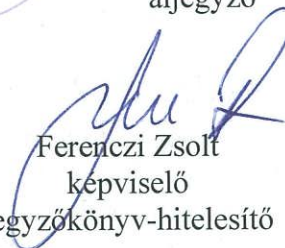 aljegyző
Ferenczi Zsolt
képviselő
egyzőkönyv-hitelesítő